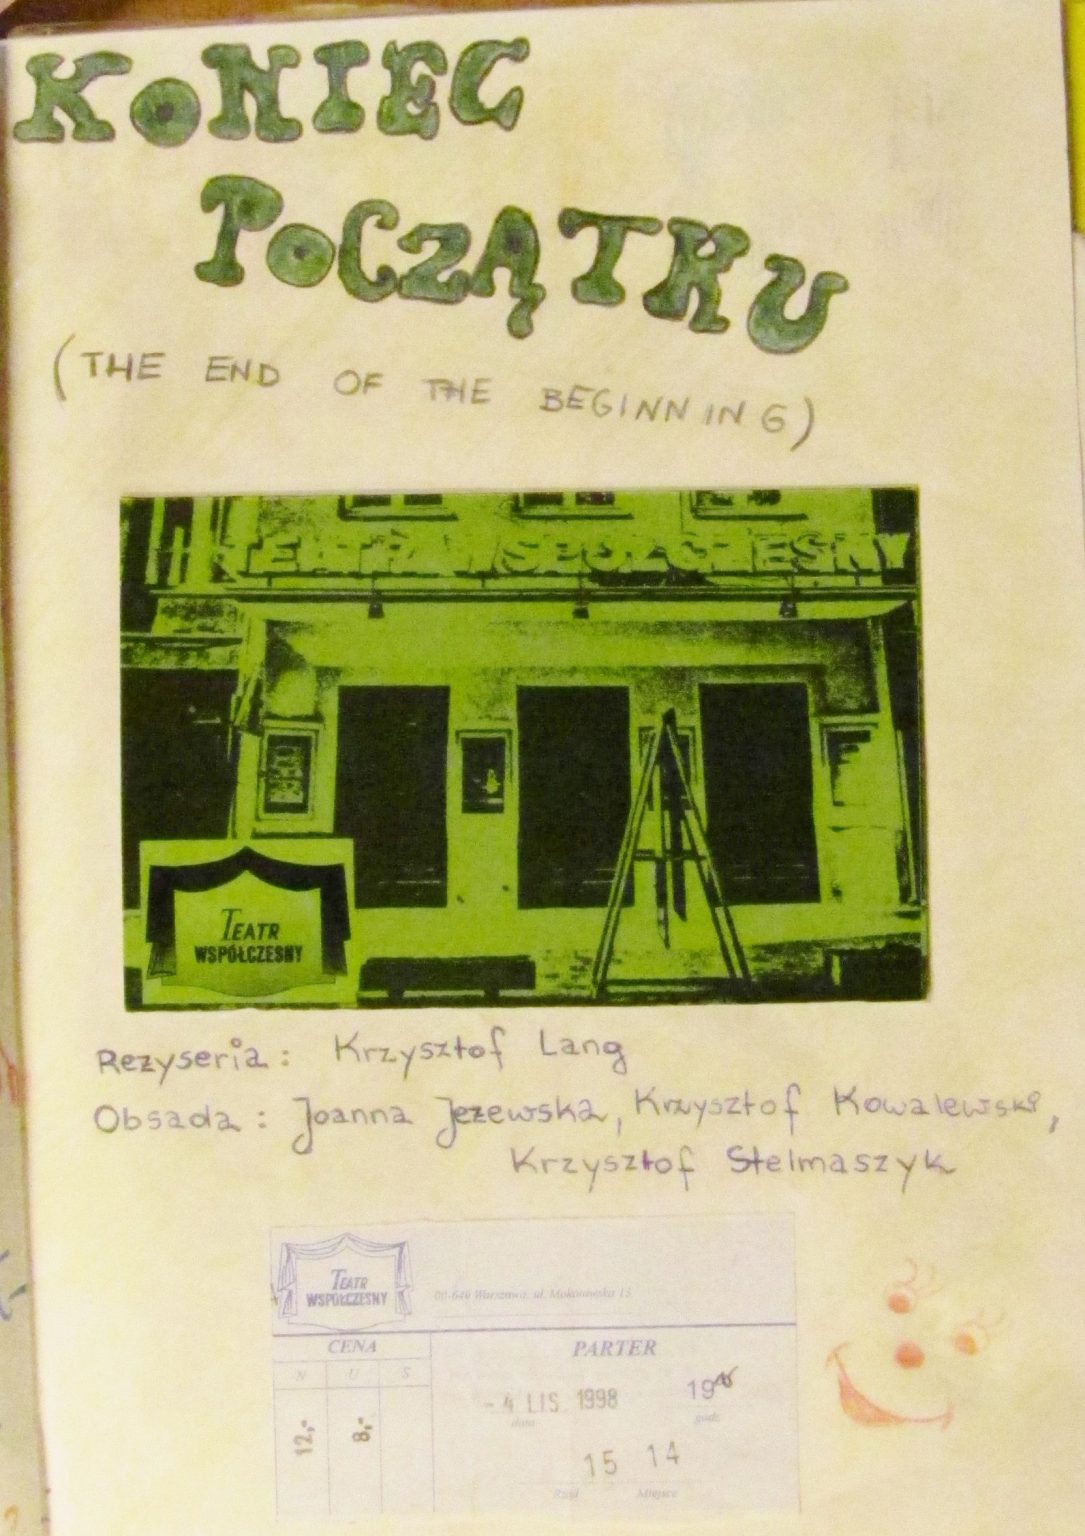 KONIEC
POCZĄTKU
(THE END OF THE BEGINNING)
TEATR WSPÓŁCZESNY
TEATR
WSPÓŁCZESNY
Reżyseria: Krzysztof Lang
Obsada: Joanna Jeżewska, Krzysztof Kowalewski,
Krzysztof Stelmaszyk
TEATR
WSPÓŁCZESNY
00-640 Warszawa, ul. Mokotowska 13
CENA PARTER
N U S
- 4 LIS. 1998 19
data godz.
12,- 8,-
15 14
Rząd Miejsce